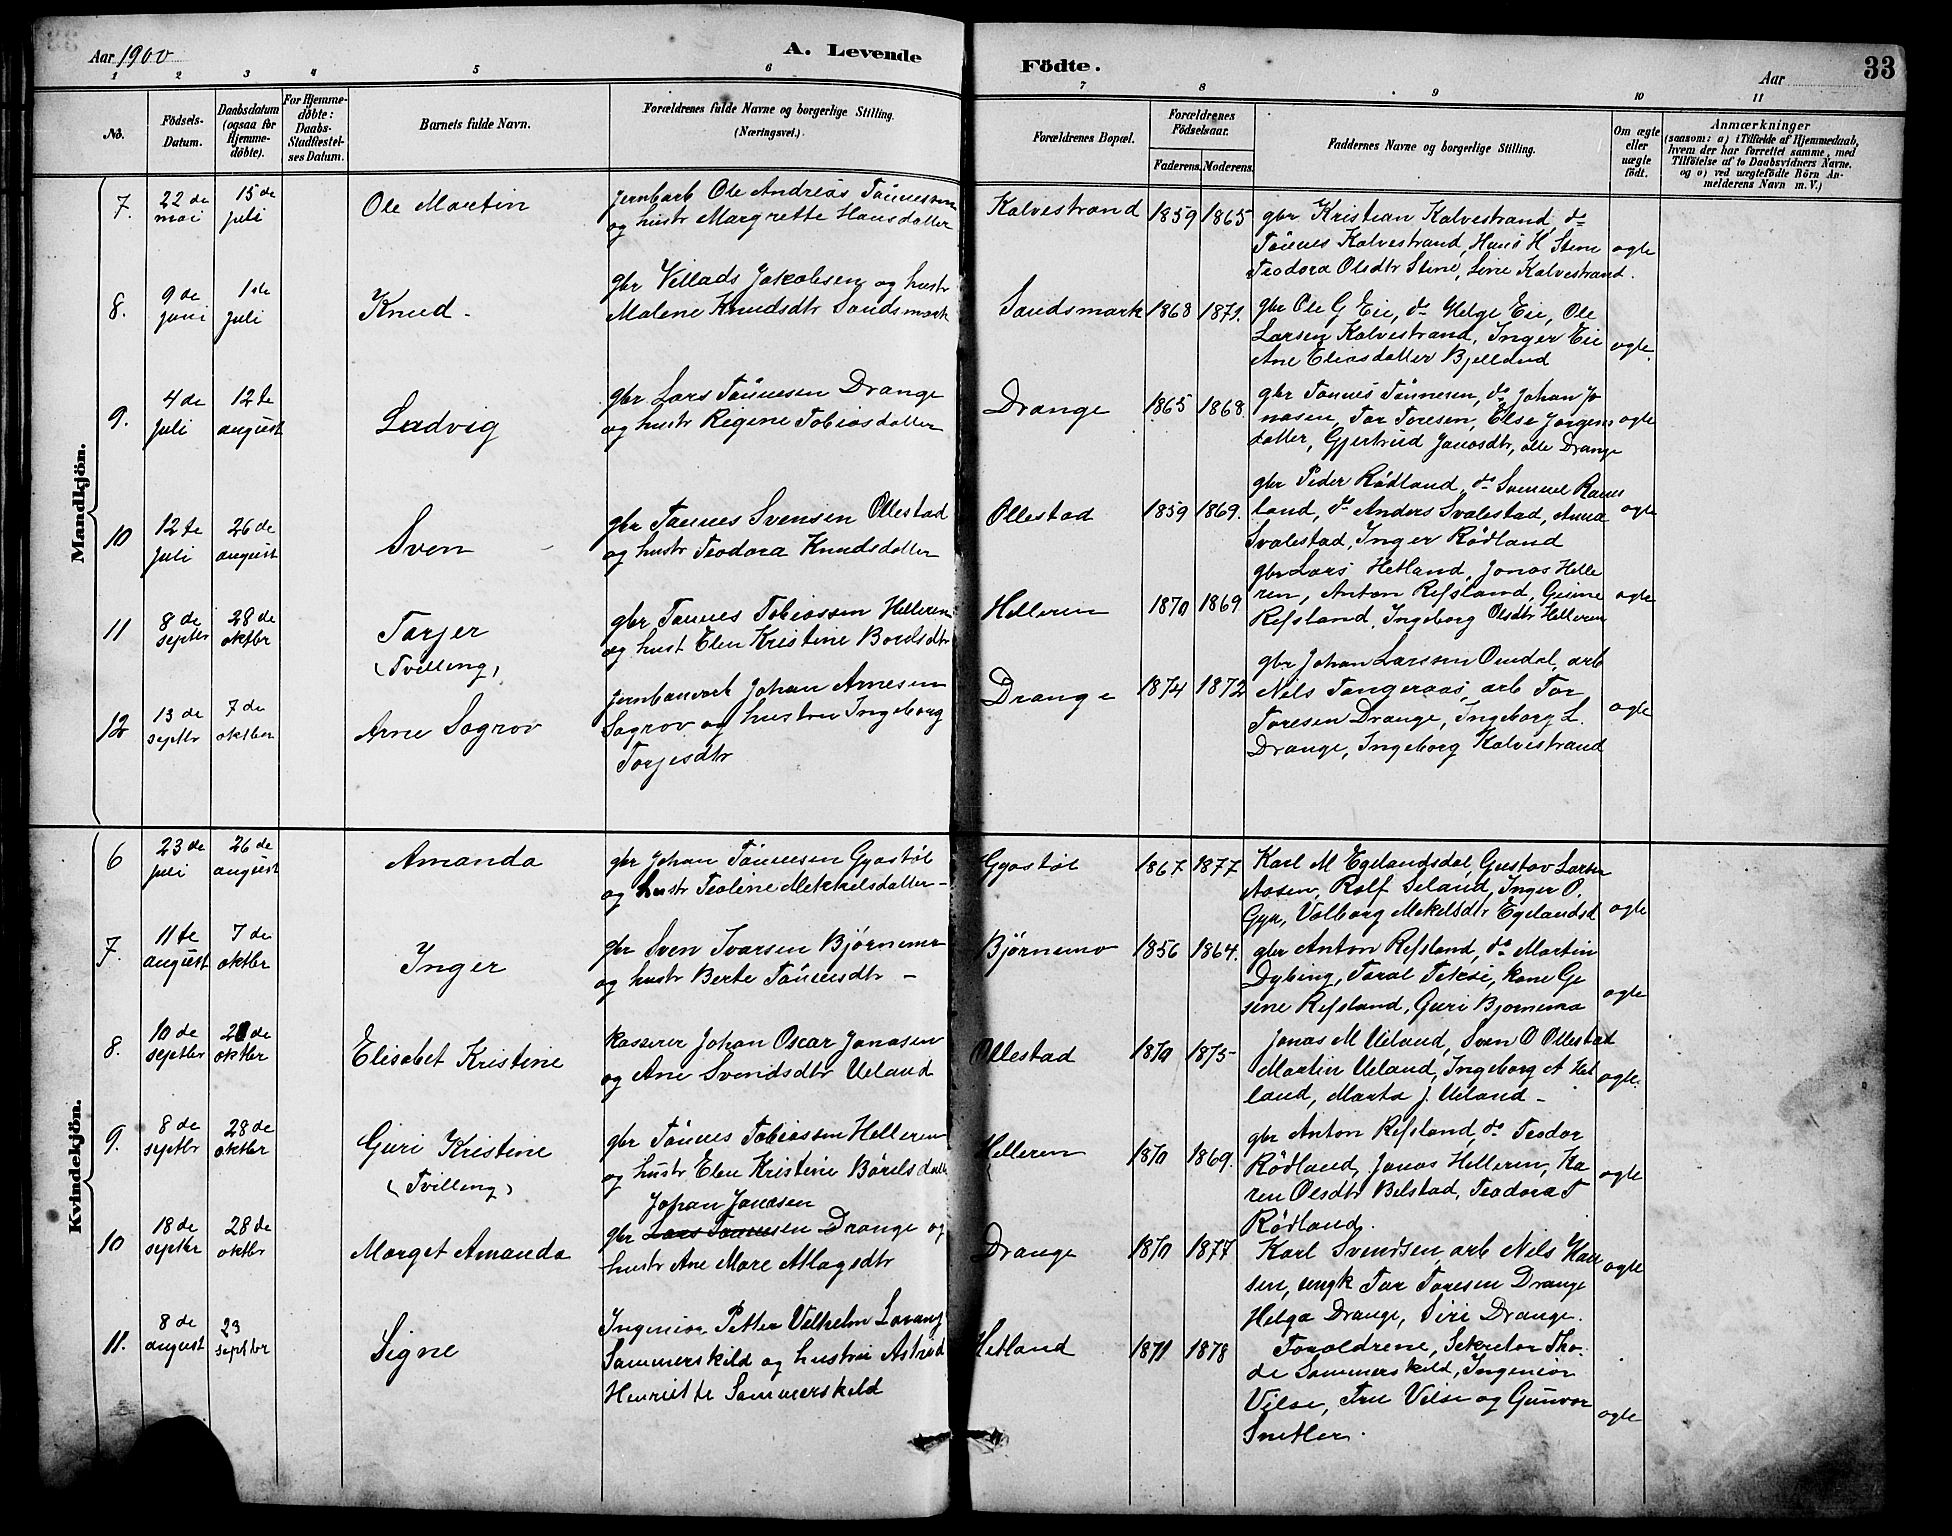 Aar 1900
A. Levende
Födte.
Aar
33
1 2 3 4 5 6 7 8 9 10 11
No.
Födsels-Datum.
Daabsdatum (ogsaa for Hjemme-döbte).
For Hjemme-döbte: Daabs-Stadfæstel-ses Datum.
Barnets fulde Navn.
Forældrenes fulde Navne og borgerlige Stilling. (Næringsvei.)
Forældrenes Bopæl.
Forældrenes Födselsaar.
Faderens. Moderens.
Faddernes Navne og borgerlige Stilling.
Om ægte eller uægte födt.
Anmærkninger
(saasom: a) i Tilfælde af Hjemmedaab,
hvem der har forrettet samme, med
Tilföielse af to Daabsvidners Navne.
og o) ved uægtefödte Börn An-
melderens Navn m. V.)
Mandkjön.
7. 22 de mai 15 de juli
Ole Martin
jernbarb Ole Andreas Tönnessen
og hustr Margrette Hansdatter
Kalvestrand 1859 1865
gbr Kristian Kalvestrand, do
Tönnes Kalvestrand, Hans H Stene
Teodora Olsdtr Stene, Sine Kalvestrand.
ægte
8. 9 de juni 1ste juli
Knud -
gbr Villads Jakobsen og hustr
Malene Knudsdtr Sandsmark
Sandsmark 1868 1871.
gbr Ole G Eie, do Helge Eie, Ole
Larsen Kalvestrand, Inger Eie
Ane Eliasdatter Bjelland
ægte.
9. 4 de juli 12te august
Ludvig
gbr Lars Tönnesen Drange
og hustr Regine Tobiasdatter
Drange 1865 1868
gbr Tönnes Tönnesen, do Johan Jo
nasen, Tor Toresen, Else Jörgens
datter, Gjertrud Jonasdtr, alle Drange
ægte
10 12te juli 26 de august
Sven
gbr Tönnes Svensen Ollestad
og hustr Teodora Knudsdatter
Ollestad 1859 1869.
gbr Peder Rødland, do Samuel Rams
land, do Anders Svalestad, Anna
Svalestad, Inger Rødland
ægte
11 8 de septbr 28 de oktbr
Torjer
(Tvilling)
gbr Tönnes Tobiassen Helleren
og hust Elen Kristine Bordsdtr
Helleren 1870 1869
gbr Lars Hetland, Jonas Helle
ren, Anton Refsland, Gesine
Refsland, Ingeborg Olsdtr Helleren
ægte
12 13 de septbr 7 de oktbr
Arne Sogrov
jernbanearb Johan Arnesen
Sogrov og hustru Ingeborg
Torjesdtr
Drange 1874 1872
gbr Johan Larssen Omdal, arb
Nels Tengeraas, arb Tor
Toresen Drange, Ingeborg L.
Drange, Ingeborg Kalvestrand
ægte
Kvindekjön.
6 23 de juli 26 de august
Amanda
gbr Johan Tönnesen Gyastöl
og hustr Teoline Mekkelsdatter -
Gyastöl 1867 1877
Karl M Egelandsdal, Gustav Larsen
Aasen, Rolf Seland, Inger O.
Gya, Valborg Mekelsdtr Egelandsd
ægte
7. 11te august 7 de oktbr
Inger
gbr Sven Ivarsen Bjørnemo
og hustr Berte Tönnesdtr -
Bjørnemo 1856 1864.
gbr Anton Refsland, do Martin
Dybing, Toral Teksö, kone Ge
sine Refsland, Guri Bjornemo
ægte
8. 10 de septbr 21 de oktbr
Elisabet Kristine
kasserer Johan Oscar Jonasen
og Ane Svendsdtr Ueland
Ollestad 1870 1875
Jonas M Ueland, Sven O Ollestad
Martin Ueland, Ingeborg A Het
land, Marta J. Ueland -
ægte.
9. 8 de septbr 28 de oktbr
Guri Kristine
(Tvilling)
gbr Tönnes Tobiassen Helleren
og hustr Elen Kristine Bördsdatt
Helleren 1870 1869.
gbr Anton Refsland, do Teodor
Rødland, Jonas Helleren, Ka
ren Olsdtr Belstad, Teodora T
Rødland.
ægte
10 18 de septbr 28 de oktbr
Marget Amanda
Johan Jonasen
gbr Lars Tönnesen Drange og
hustr Ane Mare Aslagsdtr
Drange 1870 1877
Karl Svendsen, arb Nils Han
sen, ungk Tor Toresen Drange
Helga Drange, Siri Drange.
ægte
11. 8 de august 23 septbr
Signe
Ingeniør Petter Vilhelm
Sommerskild og hustru Astrid
Henriette Sommerskild
Hetland 1871 1878
Foraldrene, Sekretær Tho-
de Sommerskild, Ingeniör
Vilse, Fru Vilse og Gunvor
Snitler.
ægte